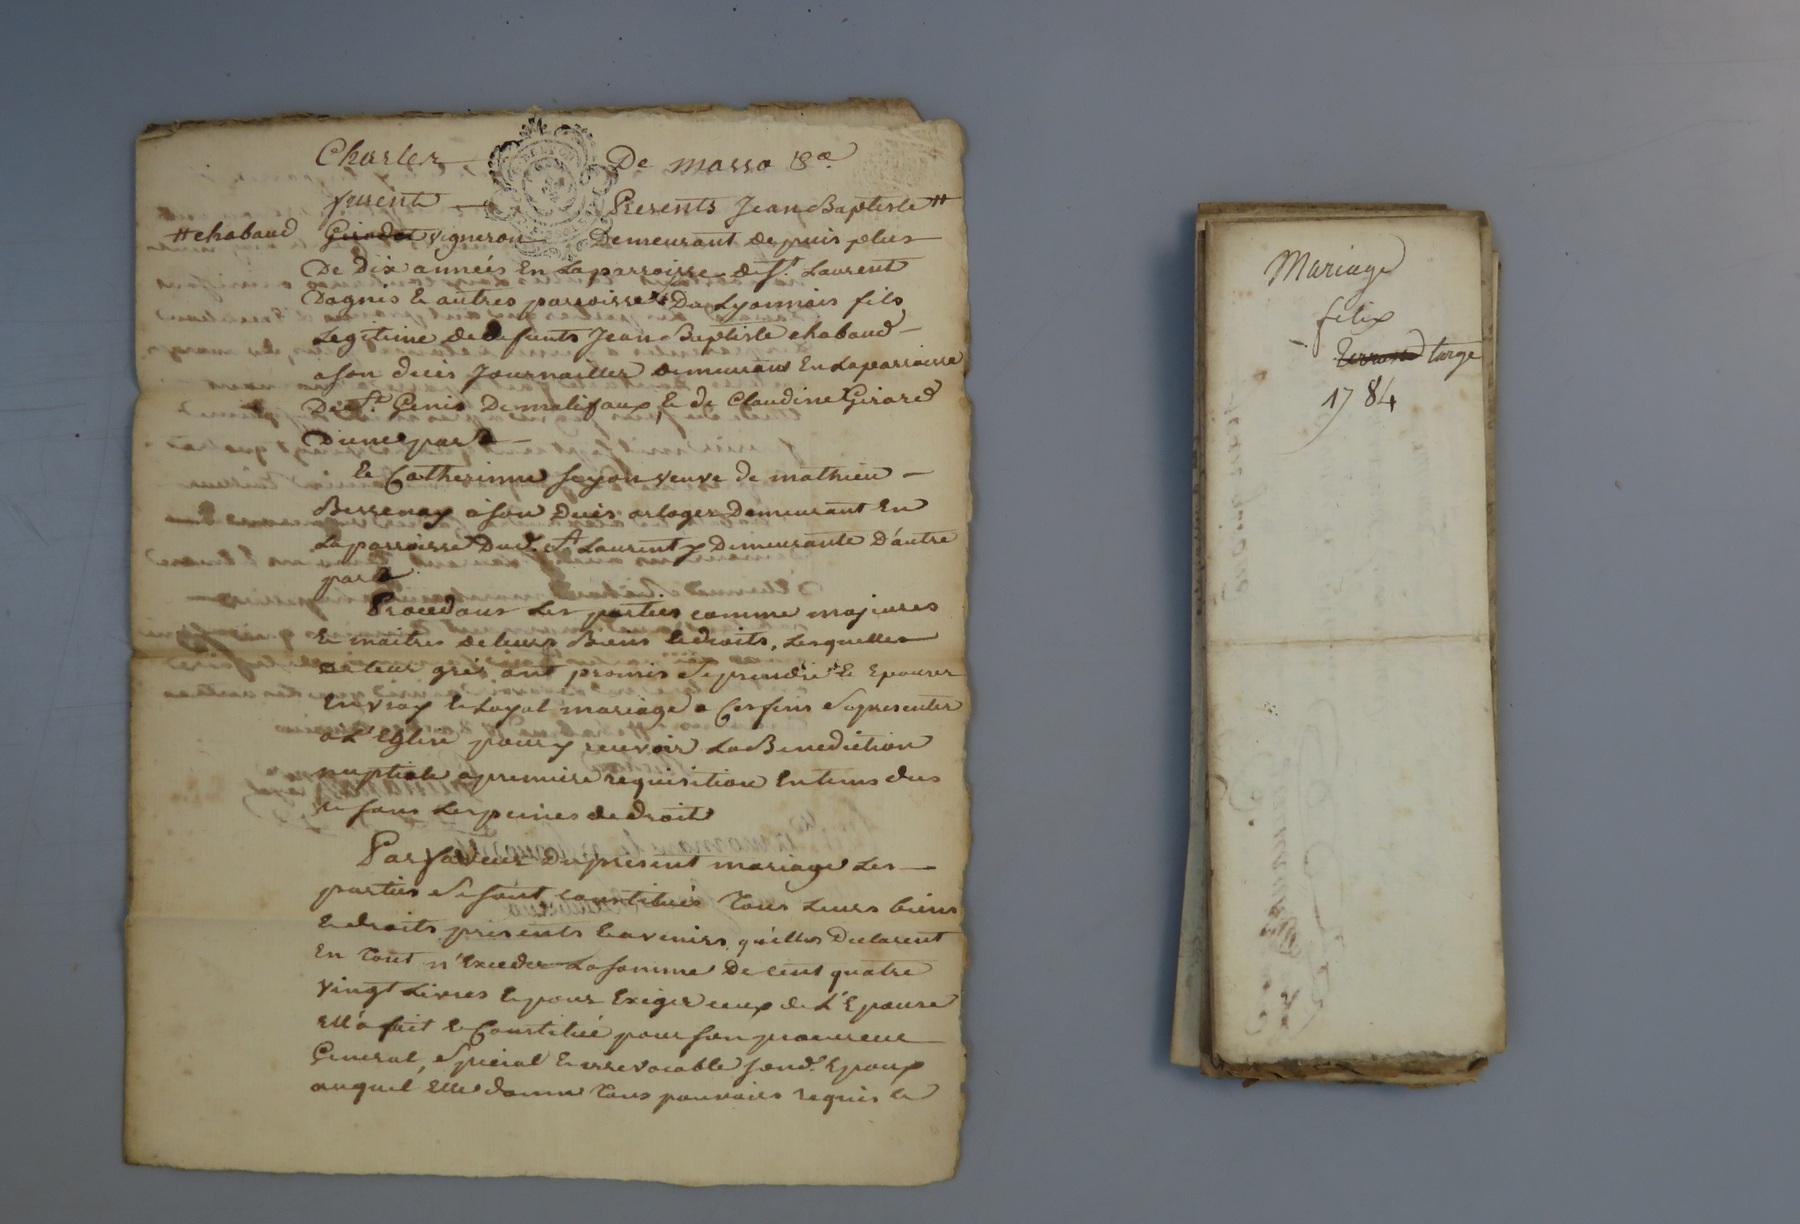 Charles De Masso &ca.
furent Presents Jean Baptiste #
# chabaud
Girodet vigneron Demeurant depuis plus
De dix années En la parroisse de St. Laurent
Dagnis & autres parroisses Du Lyonnois fils
Legitime de defunts Jean Baptiste chabaud
a son deces Journaillier demeurant En la parroisse
De St. Genis De malifaux & de Claudine Girard
D'une part
& Catherinne veuve de mathieu
a son deces orloger Demeurant En
La parroisse Dud. St Laurent y Demeurante D'autre
part
Procedans Les parties comme majeures
& maitres de leurs Biens & droits, Lesquelles
de leur gré ont promis se prendre & Epouser
En vray & Loyal mariage a Ces fins se presenter
a L'Eglise pour y recevoir La Benediction
nuptiale a premiere requisition En tems dus
& sous Les peines de droit
Par faveur Du present mariage Les
parties se sont constitués Tous Leurs biens
& droits presents & avenirs, qu'elles Declarent
En Tout n'Exceder La somme De cent quatre
vingt Livres & pour Exiger ceux de L'Epouse
Ell'a fait & Constitué pour son procureur
General, special & irrevocable sond. Epoux
auquel Elle donne Tous pouvoirs requis &
Mariage
felix
targe
1784